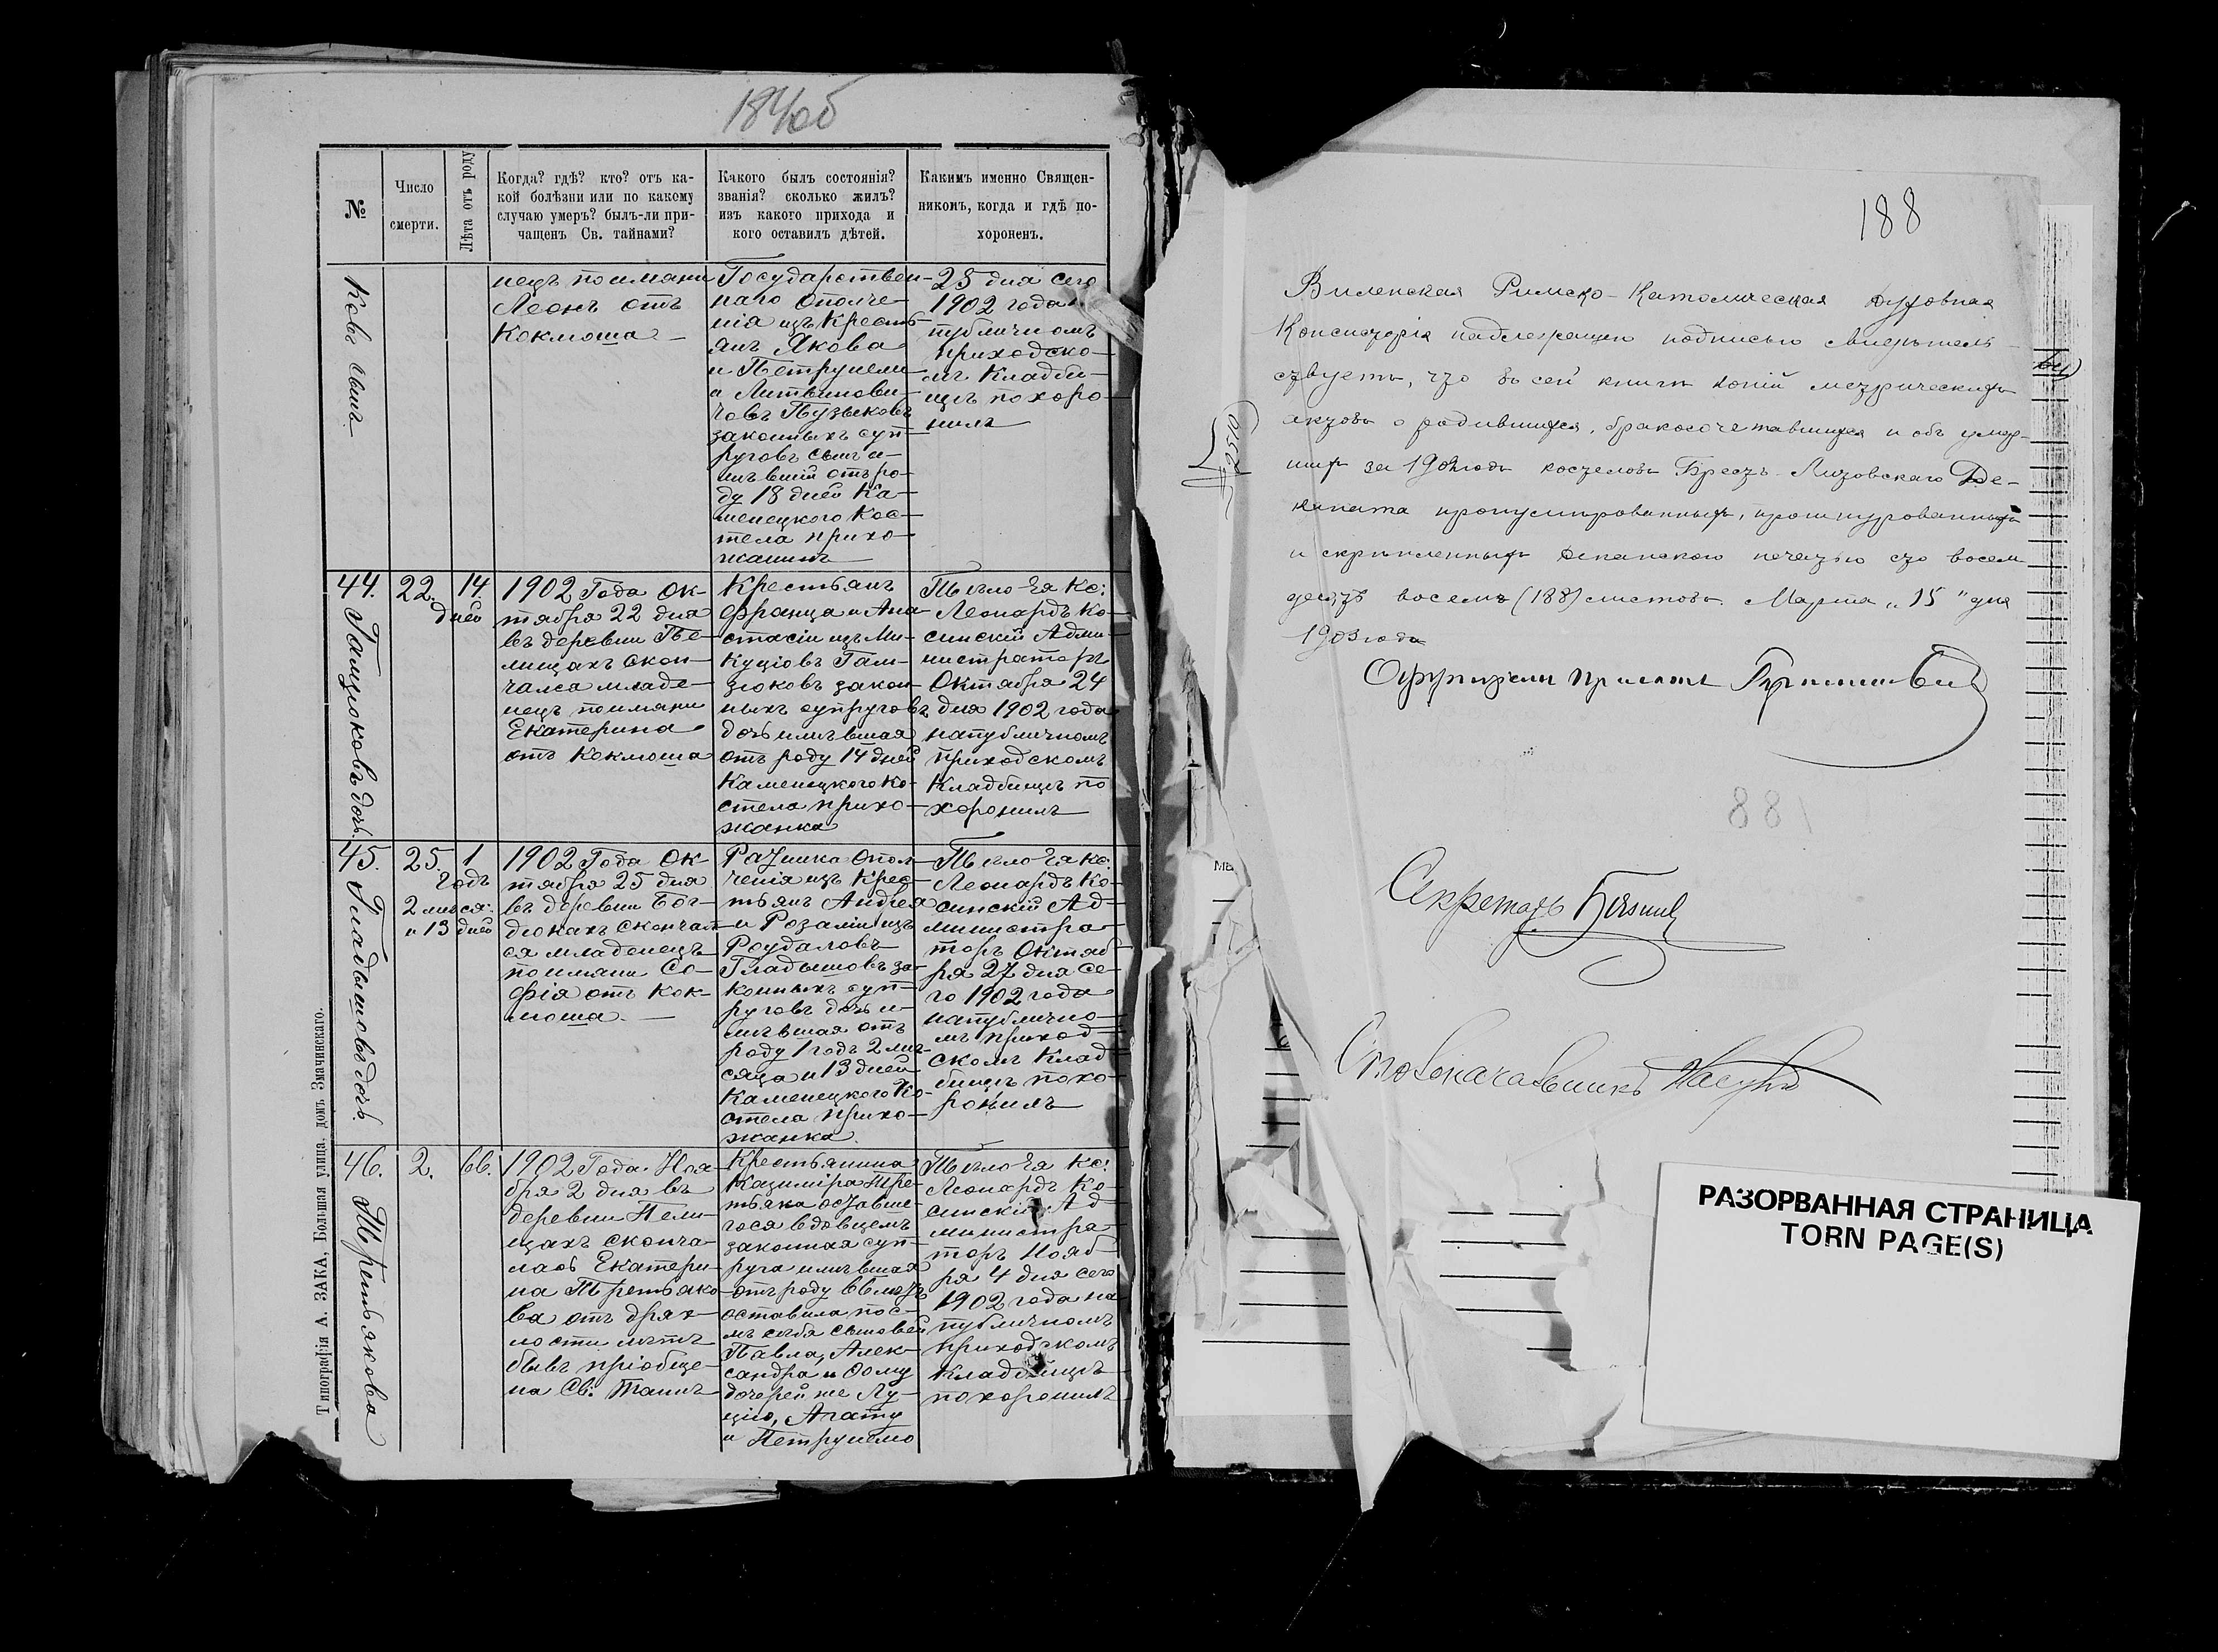 184об
№
Число
смерти.
Лѣта отъ роду
Когда? гдѣ? кто? отъ ка-
кой болѣзни или по какому
случаю умеръ? былъ-ли при-
чащенъ Св. тайнами?
Какого былъ состоянія?
званія? сколько жилъ?
изъ какого прихода и
кого оставилъ дѣтей.
Какимъ именно Священ-
никомъ, когда и гдѣ по-
хороненъ.
ковъ сынъ.
нецъ поимяни
Леонъ отъ
Коклюша
Государствен-
наго Ополче-
нія изъ Кресть-
янъ Якова
и Петрунели
и Литвинови-
човъ Пузыковъ
законныхъ суп-
руговъ сынъ и-
мѣвшій отъ ро-
ду 18 дней Ка-
менецкого Кос-
тела прихо-
жанинъ
23 дня сего
1902 года на
публичномъ
приходско-
мъ Кладби-
щѣ похоро-
нилъ
44.
Гамзюковъ дочь.
22.
14.
дней
1902 Года Ок-
тября 22 дня
въ деревни Пе-
лищахъ скон-
чалса младе-
нецъ поимяни
Екатерина
отъ Коклюша
Крестьянъ
Франца и Ана-
стасіи изъ Ми-
куціовъ Гам-
зюковъ закон-
ныхъ супруговъ
дочь имѣвшая
отъ роду 14 дней
Каменецкого Ко-
стела прихо-
жанка
Тѣло Ея Кс:
Леонардъ Ко-
синскій Адми-
нистраторъ
Октября 24
дня 1902 года
напубличномъ
приходскомъ
Кладбищѣ по
хоронилъ
45.
Гладышовъ дочь.
25.
1
годъ
2 мѣся:
и 13 дней
1902 Года Ок-
тября 25 дня
въ деревни Бог-
дюкахъ Скончал-
ся младенецъ
поимяни Со-
фія отъ Кок-
люша.
Ратника Опол-
ченія изъ Крес-
тьянъ Андрея
и Розаліи изъ
Роудаловъ
Гладышовъ за-
конныхъ суп-
руговъ дочь и-
мѣвшая отъ
роду 1 годъ 2 мѣ-
сяца и 13 дней
Каменецкого Ко-
стела прихо-
жанка.
Тѣло Ея Кс:
Леонардъ Ко-
синскій Ад-
министра-
торъ Октяб-
ря 27 дня се-
го 1902 года
напублично-
мъ приход-
скомъ Клад-
бищѣ похо-
ронилъ
46.
Третьякова
2.
66.
1902 Года Ноя-
бря 2 дня въ
деревни Пели-
щахъ сконча-
лась Екатери-
на Третьяко-
ва отъ дрях-
лости лѣтъ
бывъ пріобще-
на Св: Таинъ
Крестьянина
Казиміра Тре-
тьяка оставше-
гося вдовцемъ
законная суп-
руга имѣвшая
отъ роду 66 лѣтъ
оставила пос-
лѣ себя сыновей
Павла, Алек-
сандра и Фому
дочерей же Лу-
цію, Агату
и Петрунелю
Тѣло Ея Кс:
Леонардъ Ко-
синскій Ад-
министра-
торъ Нояб-
ря 4 дня сего
1902 года на
публичномъ
приходскомъ
Кладбищѣ
похоронилъ
Типографія А. ЗАКА, Большая улица, домъ Значинскаго.
188
Виленская Римско-Католическая Духовная
Консисторія надлежащею подписью свидѣтель-
ствуетъ, что въ сей книгѣ копій метрическихъ
актовъ о родившихся, бракосочетавшихся и объ умер-
шихъ за 1902 годъ костеловъ Брестъ-Литовскаго Де-
каната пронумированныхъ, прошнурованныхъ
и скрѣпленныхъ Деканскою печатью сто восем
десятъ восемь (188) листовъ. Марта „15" дня
1903 года
Прелатъ
881
Секретарь
Столоначальникъ
РАЗОРВАННАЯ СТРАНИЦА
TORN PAGE(S)